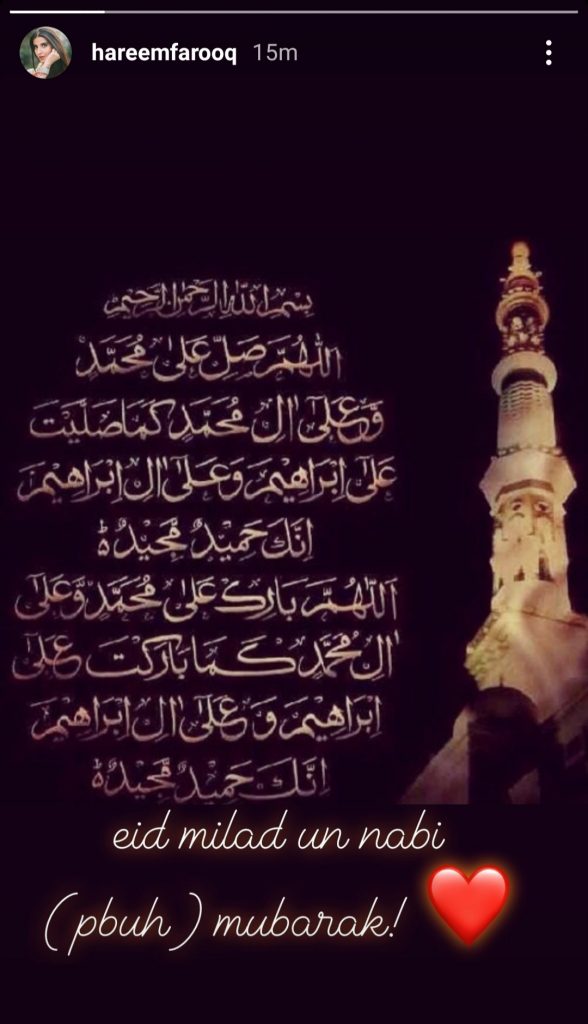 hareemfarooq 15m
بسم الله الرحمن الرحيم
اللّٰهُمَّ صَلِّ عَلٰى مُحَمَّدٍ
وَّعَلٰٓى اٰلِ مُحَمَّدٍ كَمَا صَلَّيْتَ
عَلٰٓى اِبْرَاهِيْمَ وَعَلٰٓى اٰلِ اِبْرَاهِيْمَ
اِنَّكَ حَمِيْدٌ مَّجِيْدٌ ؕ
اَللّٰهُمَّ بَارِكْ عَلٰى مُحَمَّدٍ وَّعَلٰٓى
اٰلِ مُحَمَّدٍ كَمَا بَارَكْتَ عَلٰٓى
اِبْرَاهِيْمَ وَعَلٰٓى اٰلِ اِبْرَاهِيْمَ
اِنَّكَ حَمِيْدٌ مَّجِيْدٌ ؕ
eid milad un nabi
(pbuh) mubarak! ❤️